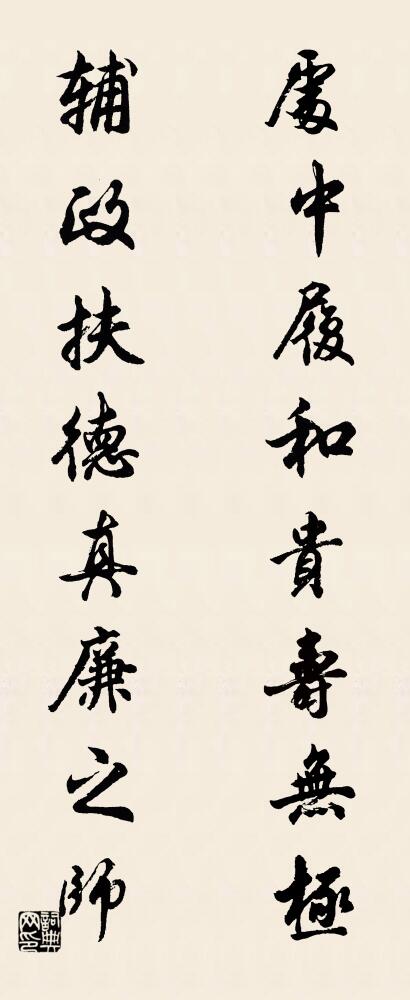 處中履和貴壽無極
辅政扶德真廉之師
詞典网印